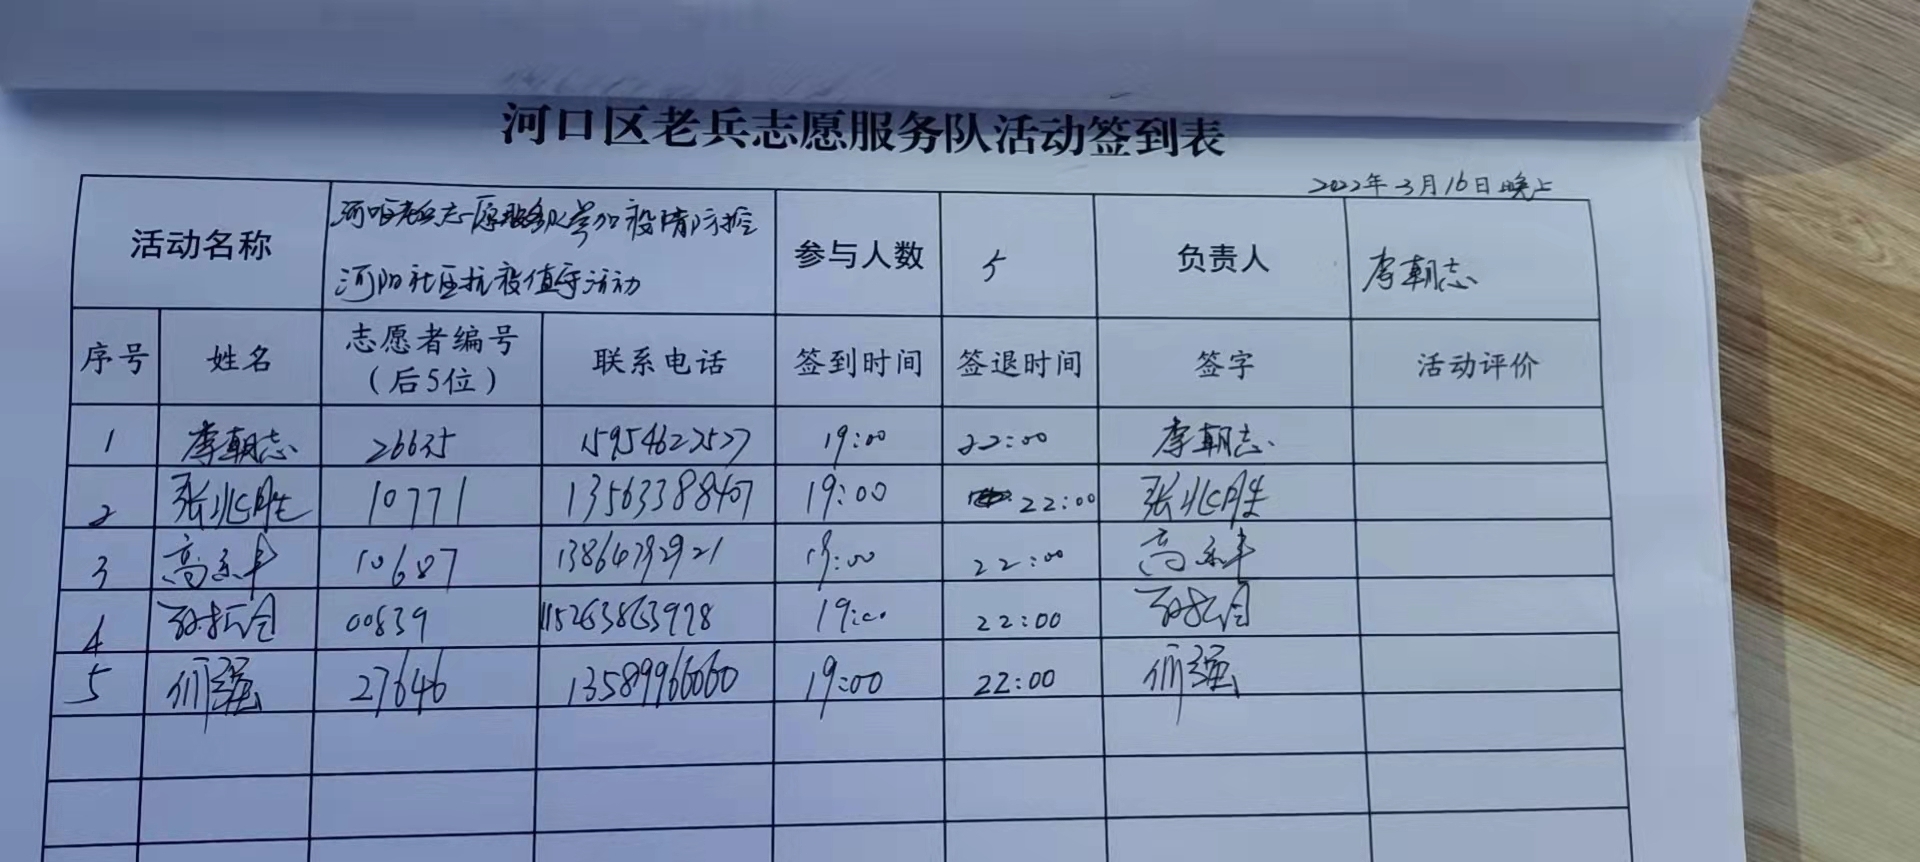 河口区老兵志愿服务队活动签到表
2022年3月16日晚上
活动名称 河口区老兵志愿服务队参加疫情防控 参与人数 5 负责人 李朝志
河阳社区抗疫值守活动
序号 姓名 志愿者编号 联系电话 签到时间 签退时间 签字 活动评价
（后5位）
1 李朝志 26635 15954622527 19:00 22:00 李朝志
2 张兆胜 10771 13563388407 19:00 22:00 张兆胜
3 高 10687 13864792921 19:00 22:00 高
4 00839 15263863978 19:00 22:00
5 强 27646 13589966060 19:00 22:00 强